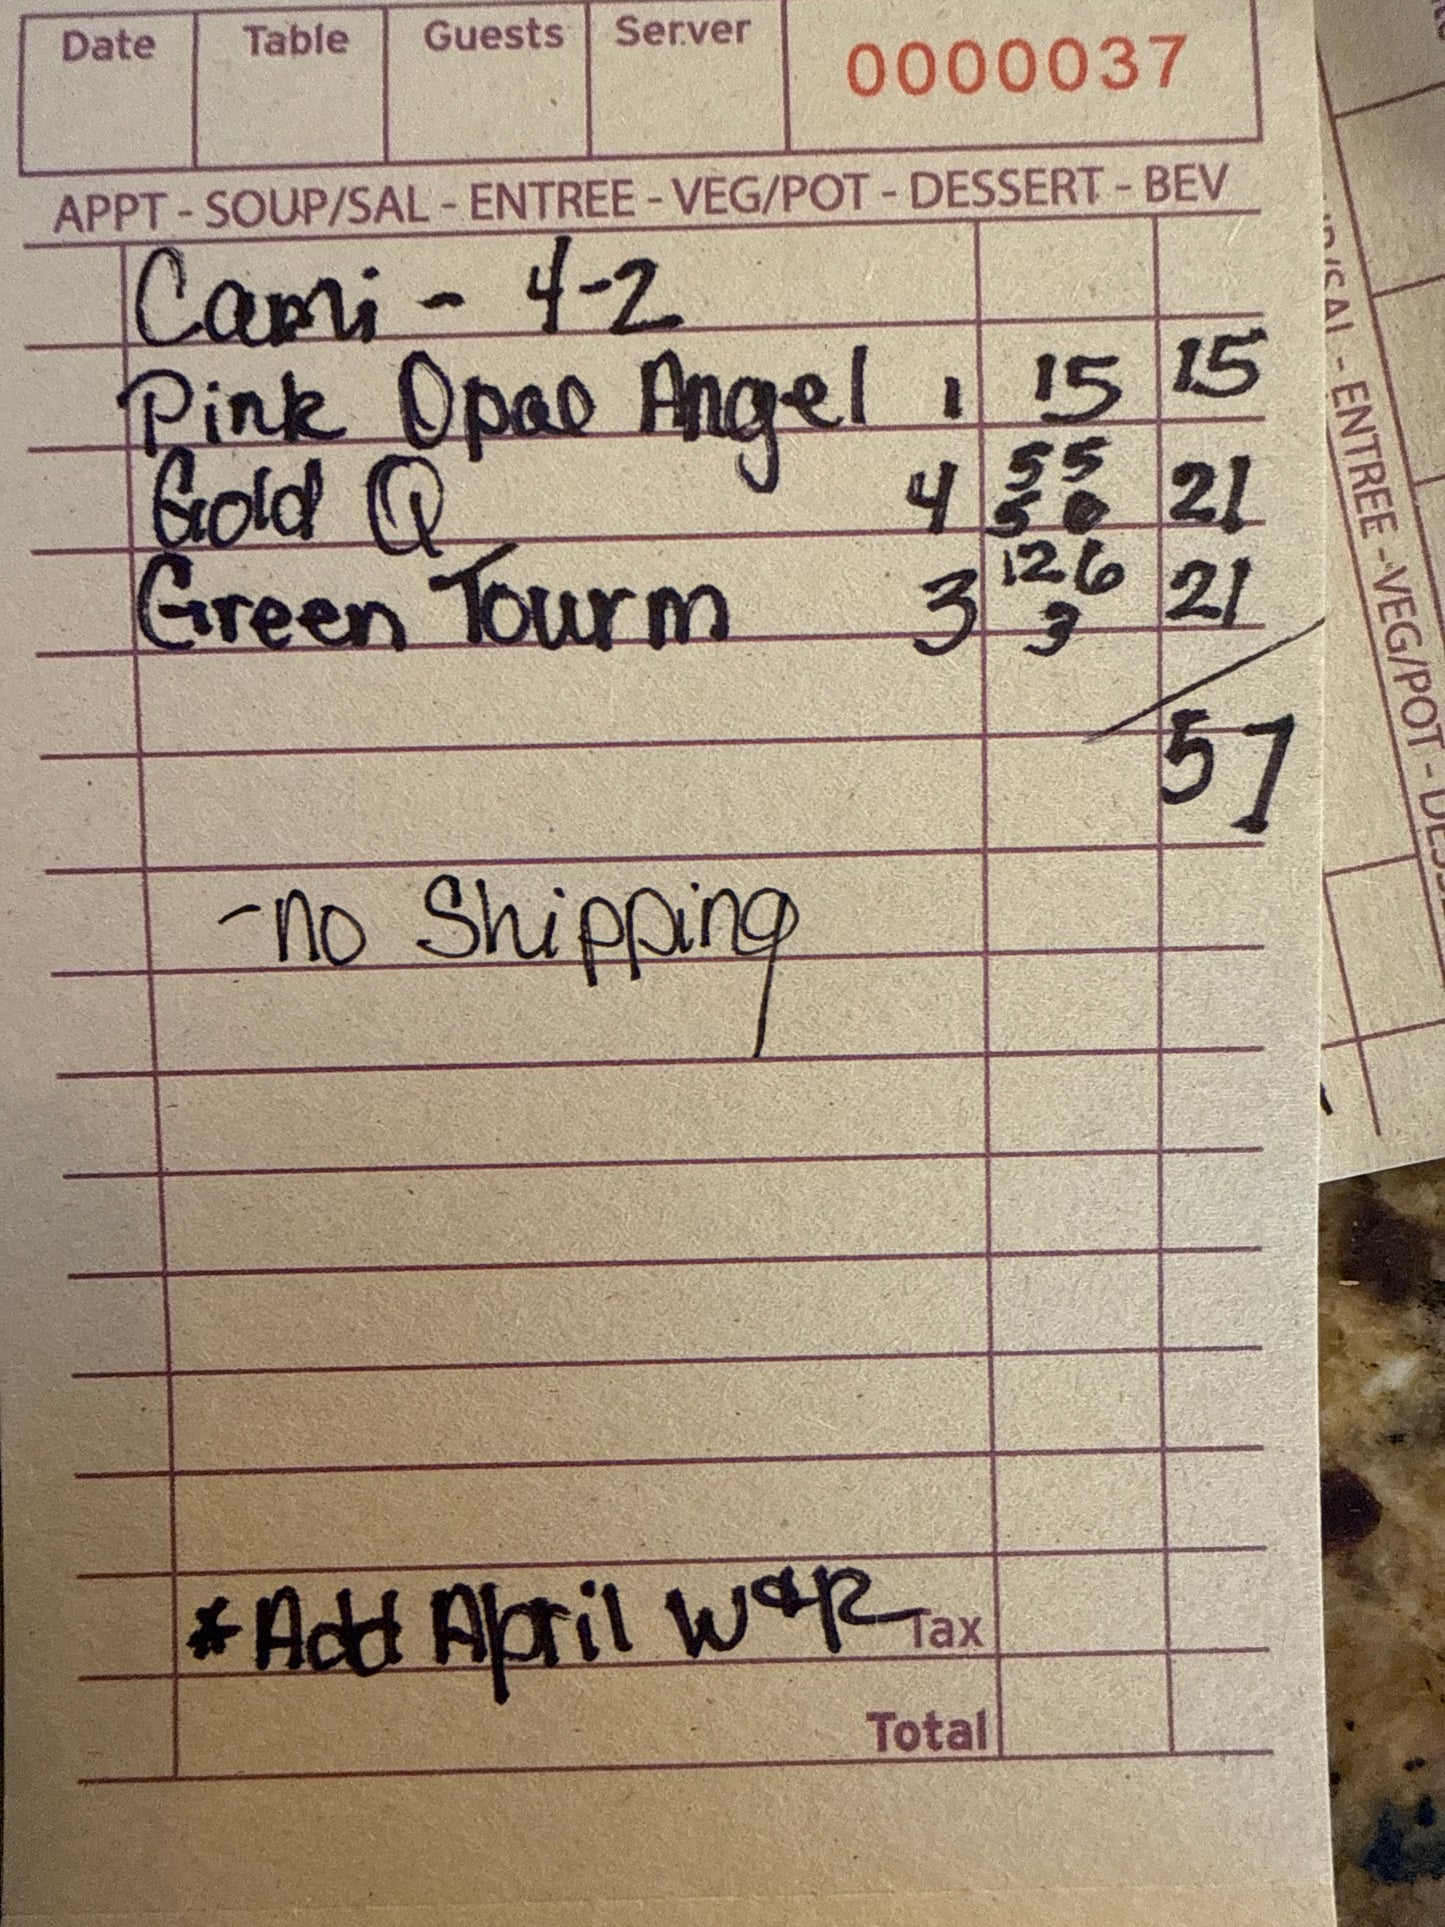 Date Table Guests Server 0000037
APPT - SOUP/SAL - ENTREE - VEG/POT - DESSERT - BEV
Cami - 4-2
Pink Opal Angel 1 15 15
Gold Q 4 5 5 5 6 21
Green Tourm 3 12 6 3 21
57
- no Shipping
* Add April W&R
Tax
Total
/SAL - ENTREE - VEG/POT -